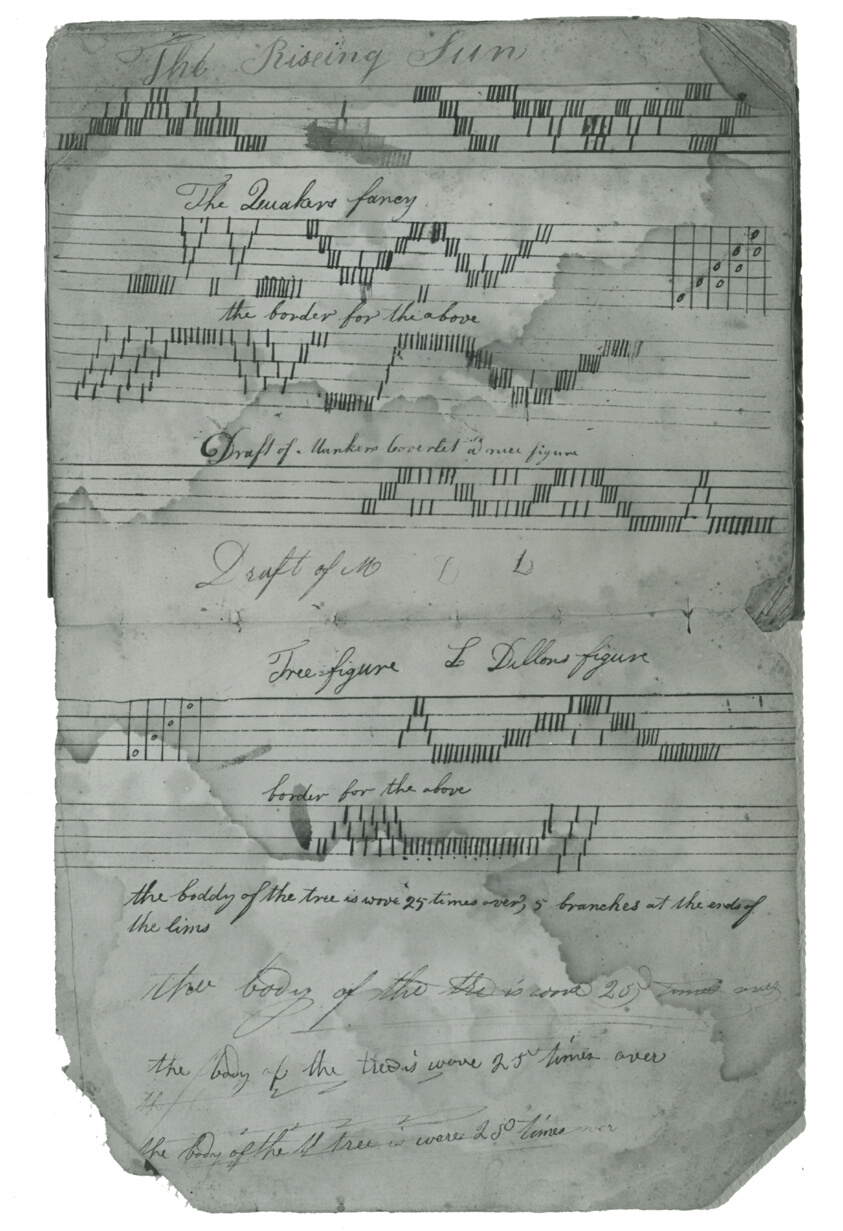 The Riseing Sun
The Quakers fancy
the border for the above
Draft of Munkers Coverlet a nice figure
Draft of M L
Tree figure L Dillons figure
border for the above
the boddy of the tree is wove 25 times over, 5 branches at the ends of
the lims
the body of the is wove 25 times over
the body of the tree is wove 25 times over
the
the body of the tree is wove 25 times over